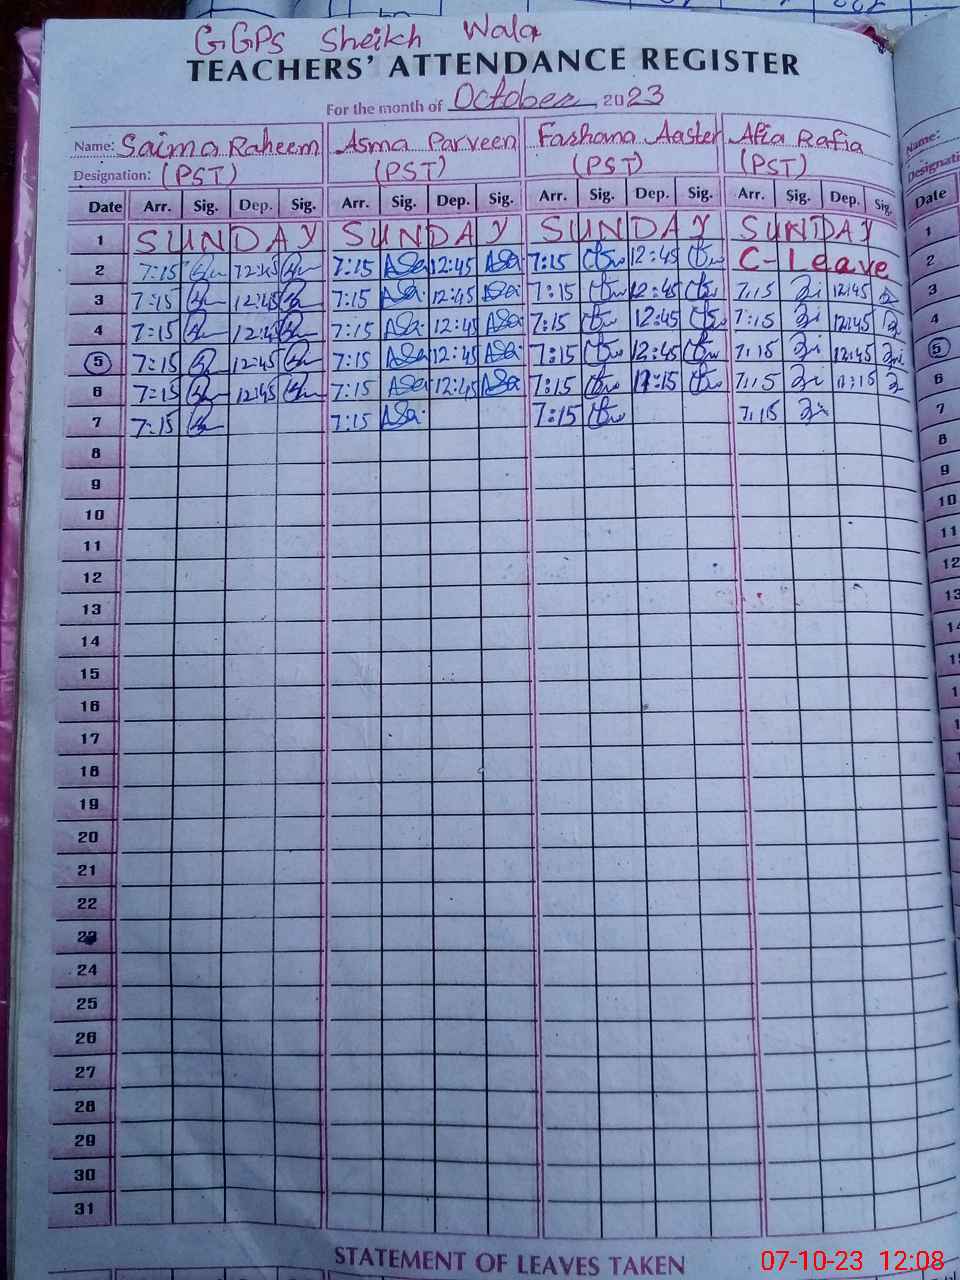 GGPS Sheikh Wala
TEACHERS' ATTENDANCE REGISTER
For the month of October 2023
Name: Saima Raheem Asma Parveen Farhana Aaster Afia Rafia Name:
Designation: (PST) (PST) (PST) (PST)
Date Arr. Sig. Dep. Sig. Arr. Sig. Dep. Sig. Arr. Sig. Dep. Sig. Arr. Sig. Dep. Sig. Date
1 SUNDAY SUNDAY SUNDAY SUNDAY 1
2 7:15 12:45 7:15 12:45 7:15 12:45 C-Leave 2
3 7:15 12:45 7:15 12:45 7:15 12:45 7:15 12:45 3
4 7:15 12:45 7:15 12:45 7:15 12:45 7:15 12:45 4
5 7:15 12:45 7:15 12:45 7:15 12:45 7:15 12:45 5
6 7:15 12:45 7:15 12:45 7:15 11:15 7:15 11:15 6
7 7:15 7:15 7:15 7:15 7
8 8
9 9
10 10
11 11
12 12
13 13
14
15
16
17
18
19
20
21
22
23
24
25
26
27
28
29
30
31
STATEMENT OF LEAVES TAKEN
07-10-23 12:08